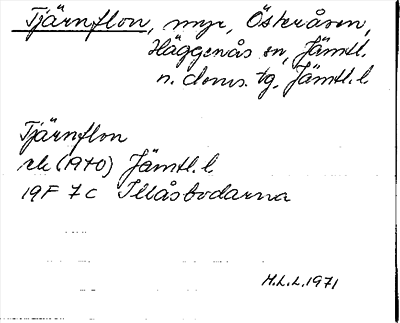 Tjärnflon, myr, Österåsen,
Häggenås sn, Jämtl.
n. doms. tg, Jämtl. l
Tjärnflon
rek (1970) Jämtl. l
19F 7c Illåsbodarna
M.L.L. 1971